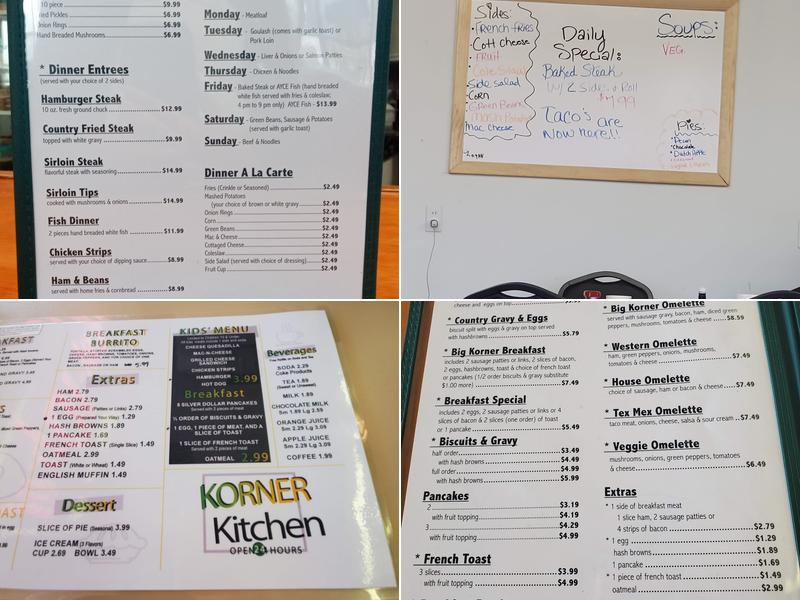 10 piece $9.99
Fried Pickles $6.99
Onion Rings $6.99
Hand Breaded Mushrooms $6.99
* Dinner Entrees
(served with your choice of 2 sides)
Hamburger Steak
10 oz. fresh ground chuck $12.99
Country Fried Steak
topped with white gravy $9.99
Sirloin Steak
flavorful steak with seasoning $14.99
Sirloin Tips
cooked with mushrooms & onions $14.99
Fish Dinner
2 pieces hand breaded white fish $11.99
Chicken Strips
served with your choice of dipping sauce $8.99
Ham & Beans
served with home fries & cornbread $8.99
Monday - Meatloaf
Tuesday - Goulash (comes with garlic toast) or
Pork Loin
Wednesday - Liver & Onions or Salmon Patties
Thursday - Chicken & Noodles
Friday - Baked Steak or AYCE Fish (hand breaded
white fish served with fries & coleslaw,
4 pm to 9 pm only) AYCE Fish - $13.99
Saturday - Green Beans, Sausage & Potatoes
(served with garlic toast)
Sunday - Beef & Noodles
Dinner A La Carte
Fries (Crinkle or Seasoned) $2.49
Mashed Potatoes
(your choice of brown or white gravy $2.49
Onion Rings $2.49
Corn $2.49
Green Beans $2.49
Mac & Cheese $2.49
Cottaged Cheese $2.49
Coleslaw $2.49
Side Salad (served with choice of dressing) $2.49
Fruit Cup $2.49
Sides:
French fries
Cott cheese
FRUIT
Cole Slaw
Side salad
Corn
Green Beans
Mash Potato
Mac cheese
Daily
Special:
Baked Steak
w/ 2 sides & Roll
$7.99
Taco's are
Now here!!
Soups:
VEG.
Pies:
Pecan
Chocolate
Dutch Apple
BREAKFAST
BURRITO
5.99
Extras
HAM 2.79
BACON 2.79
SAUSAGE (Patties or Links) 2.79
1 EGG (Prepared Your Way) 1.29
HASH BROWNS 1.89
1 PANCAKE 1.69
FRENCH TOAST (Single Slice) 1.49
OATMEAL 2.99
TOAST (White or Wheat) 1.49
ENGLISH MUFFIN 1.49
Dessert
SLICE OF PIE (Seasonal) 3.99
ICE CREAM (3 Flavors)
CUP 2.69 BOWL 3.49
KIDS' MENU
CHEESE QUESADILLA
MAC-N-CHEESE
GRILLED CHEESE
SANDWICH
CHICKEN STRIPS
HAMBURGER
HOT DOG 3.99
Breakfast
5 SILVER DOLLAR PANCAKES
Served with 2 pieces of meat
½ ORDER OF BISCUITS & GRAVY
1 EGG, 1 PIECE OF MEAT, AND A
SLICE OF TOAST
1 SLICE OF FRENCH TOAST
Served with 2 pieces of meat
OATMEAL 2.99
Beverages
SODA 2.29
Coke Products
TEA 1.89
(Sweet or Unsweet)
MILK 1.89
CHOCOLATE MILK
Sm 1.89 Lg 2.59
ORANGE JUICE
Sm 2.29 Lg 3.09
APPLE JUICE
Sm 2.29 Lg 3.09
COFFEE 1.99
KORNER
Kitchen
OPEN 24 HOURS
cheese and eggs on top
* Country Gravy & Eggs
biscuit split with eggs & gravy on top served
with hashbrowns $5.79
* Big Korner Breakfast
includes 2 sausage patties or links, 2 slices of bacon,
2 eggs, hashbrowns, toast & choice of french toast
or pancakes (1/2 order biscuits & gravy substitute
$1.00 more) $7.49
* Breakfast Special
includes 2 eggs, 2 sausage patties or links or 4
slices of bacon & 2 slices (one order) of toast
or 1 pancake $5.49
* Biscuits & Gravy
half order $3.49
with hash browns $4.99
full order $4.99
with hash browns $5.99
Pancakes
2 $3.19
with fruit topping $4.19
3 $4.29
with fruit topping $4.99
* French Toast
3 slices $3.99
with fruit topping $4.99
* Big Korner Omelette
served with sausage gravy, bacon, ham, diced green
peppers, mushrooms, tomatoes & cheese $8.59
* Western Omelette
ham, green peppers, onions, mushrooms,
tomatoes & cheese $7.49
* House Omelette
choice of sausage, ham or bacon & cheese $7.49
* Tex Mex Omelette
taco meat, onions, cheese, salsa & sour cream $7.49
* Veggie Omelette
mushrooms, onions, green peppers, tomatoes
& cheese $6.49
Extras
* 1 side of breakfast meat
1 slice ham, 2 sausage patties or
4 strips of bacon $2.79
* 1 egg $1.29
hash browns $1.89
1 pancake $1.69
* 1 piece of french toast $1.49
oatmeal $2.99